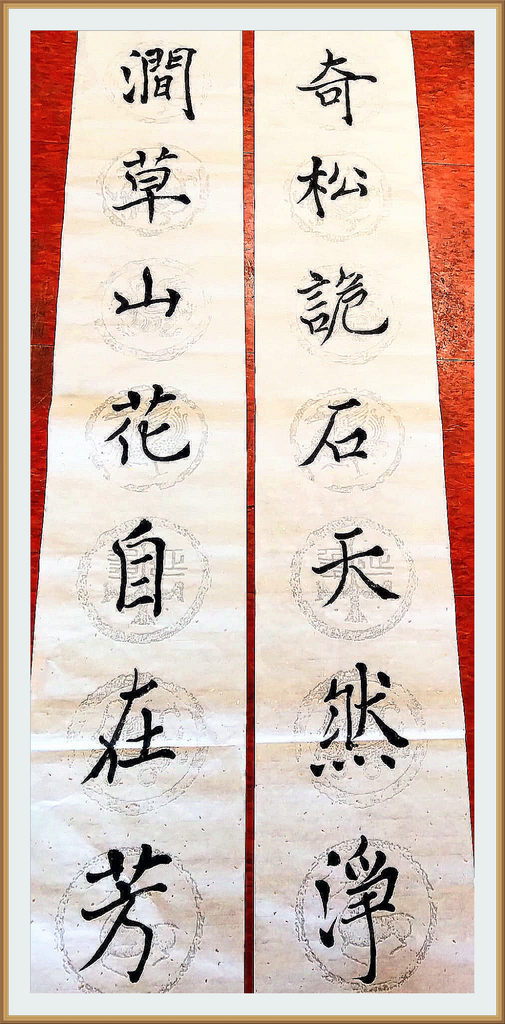 奇松詭石天然淨
澗草山花自在芳